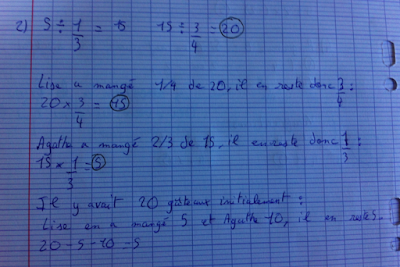 2) 5 ÷ 1/3 = 15 15 ÷ 3/4 = 20
Lise a mangé 1/4 de 20, il en reste donc 3/4 :
20 × 3/4 = 15
Agathe a mangé 2/3 de 15, il en reste donc 1/3 :
15 × 1/3 = 5
Il y avait 20 gâteaux initialement :
Lise en a mangé 5 et Agathe 10, il en reste 5.
20 - 5 - 10 = 5